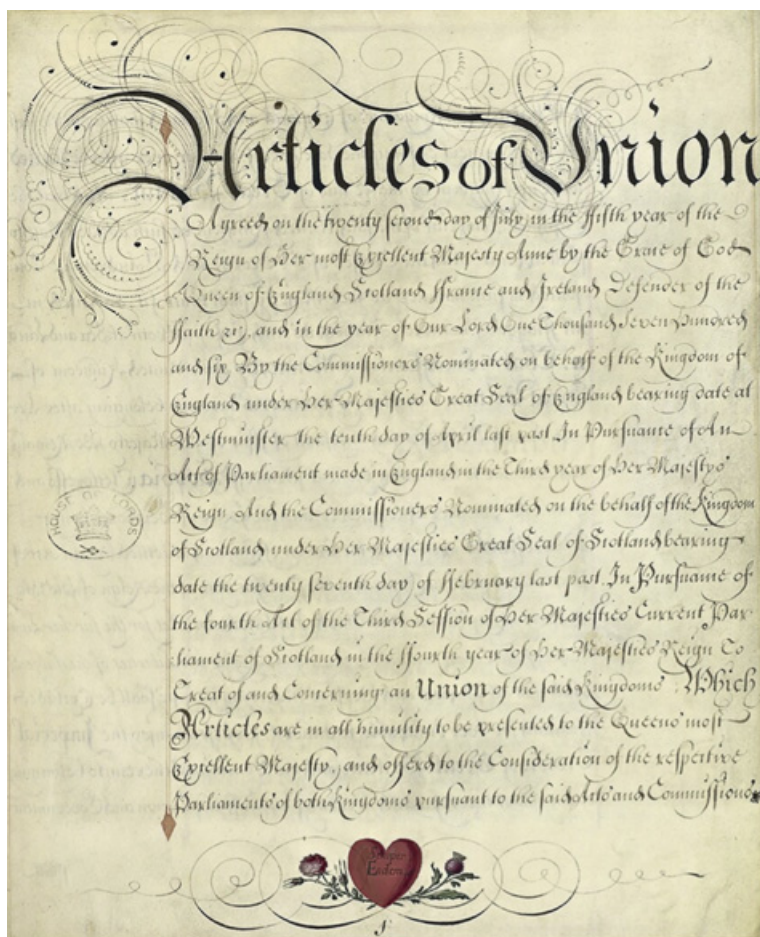 Articles of Union
Agreed on the twenty second day of July, in the ffifth year of the
Reign of Her most Excellent Majesty Anne by the Grace of God
Queen of England Scotland ffrance and Ireland Defender of the
ffaith &c, and in the year of Our Lord One Thousand Seven Hundred
and six By the Commissioners Nominated on behalf of the Kingdom of
England under Her Majesties Great Seal of England bearing date at
Westminster the tenth day of April last past In Pursuance of An
Act of Parliament made in England in the Third year of Her Majestys
Reign And the Commissioners Nominated on the behalf of the Kingdom
of Scotland under Her Majesties Great Seal of Scotland bearing
date the twenty seventh day of ffebruary last past. In Pursuance of
the fourth Act of the Third Session of Her Majesties Current Par-
liament of Scotland in the ffourth year of Her Majesties Reign To
Treat of and Concerning an Union of the said Kingdoms Which
Articles are in all humility to be presented to the Queens most
Excellent Majesty, and offered to the Consideration of the respective
Parliaments of both Kingdoms pursuant to the said Acts and Commissions
HOUSE OF LORDS
Semper
Eadem
1